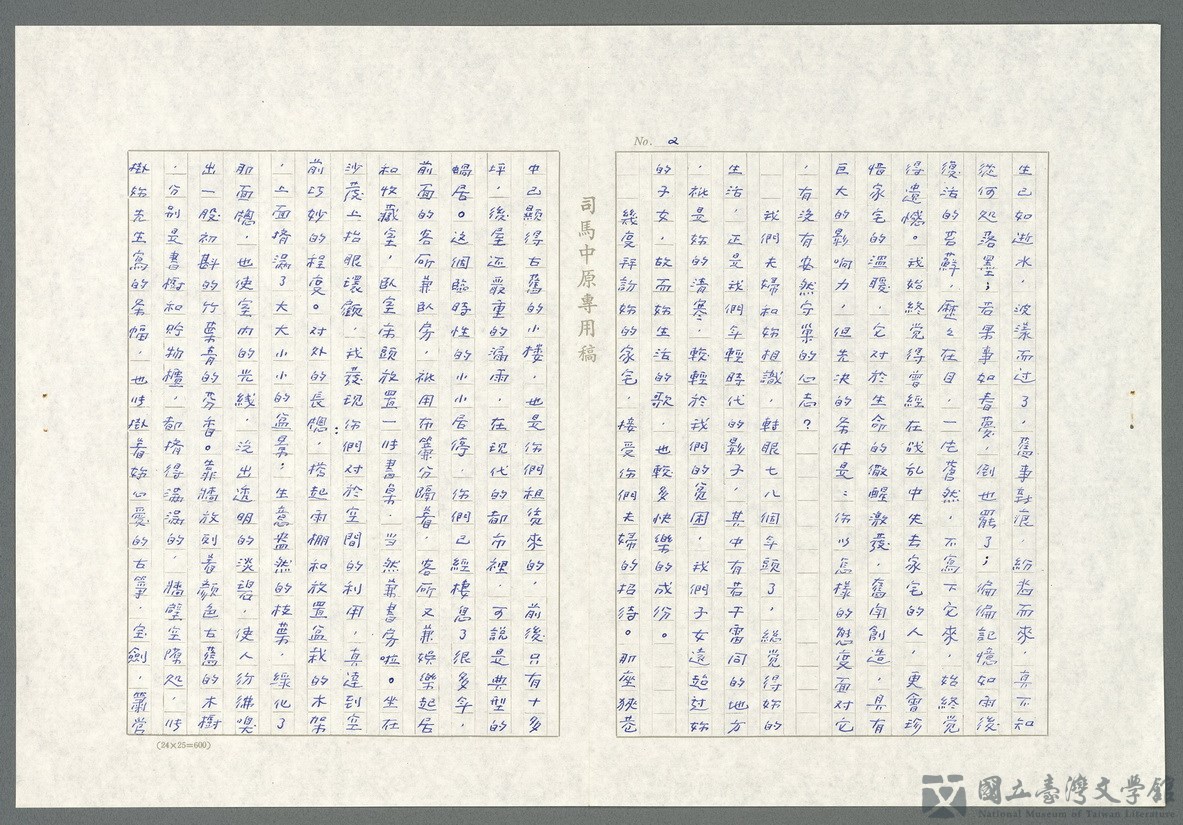 No. 2
生已如逝水，波漾而过了，舊事新痕，紛沓而來，真不知
從何处落墨；若果事如春夢，倒也罷了；偏偏記憶如雨後
復活的苔蘚，歷々在目，一片蒼然，不寫下它來，始終覺
得遺憾。我始終覺得曾經在战乱中失去家宅的人，更會珍
惜家宅的溫暖，它对於生命的儆醒激發，奮闹創造，具有
巨大的影响力，但先決的条件是：你以怎樣的態度面对它
，有沒有安然守巢的心志？
我們夫婦和妳相識，轉眼七八個年頭了，總觉得妳的
生活，正是我們年輕時代的影子，其中有若干雷同的地方
，祇是妳的清寒，較輕於我們的窮困，我們子女遠超过妳
的子女，故而妳生活的歌，也較多快樂的成份。
幾度拜訪妳的家宅，接受你們夫婦的招待。那座狹巷
司馬中原專用稿
中已顯得古舊的小樓，也是你們租後來的，前後只有十多
坪，後屋还嚴重的漏雨，在現代的都市裡，可說是典型的
蝸居。这個臨時性的小小居停，你們已經棲息了很多年，
前面的客所兼臥房，祇用布簾分隔着，客所又兼娛樂起居
和收藏室，臥室床頭放置一付書桌，当然兼書房啦。坐在
沙發上抬眼環顧，我發现你們对於空間的利用，真達到空
前巧妙的程度。对外的長窻，搭起雨棚和放置盆栽的木架
，上面擠滿了大大小小的盆景；生意盎然的枝葉，綠化了
那面窻，也使室內的光线，泛出透明的淡碧，使人彷彿嗅
出一股初斟的竹葉青的芳香。靠牆放列着顏色古舊的木櫥
，分别是書櫥和貯物櫃，都擠得滿滿的，牆壁空隙处，付
掛妳先生寫的条幅，也付掛着妳心愛的古箏，宝劍，簫管
(24×25=600)
國立臺灣文學館
National Museum of Taiwan Literature